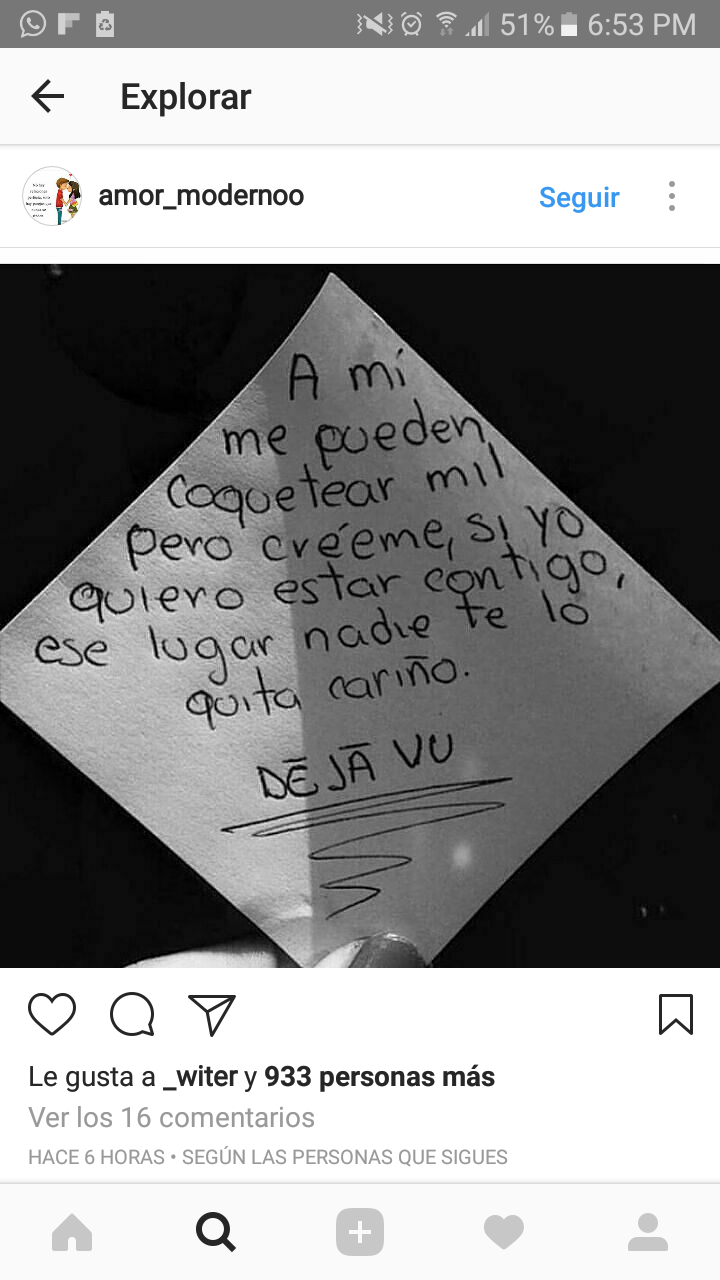 51% 6:53 PM
Explorar
amor_modernoo
Seguir
A mí
me pueden
coquetear mil
pero créeme, si yo
quiero estar contigo,
ese lugar nadie te lo
quita cariño.
DEJA VU
Le gusta a _witer y 933 personas más
Ver los 16 comentarios
HACE 6 HORAS • SEGÚN LAS PERSONAS QUE SIGUES